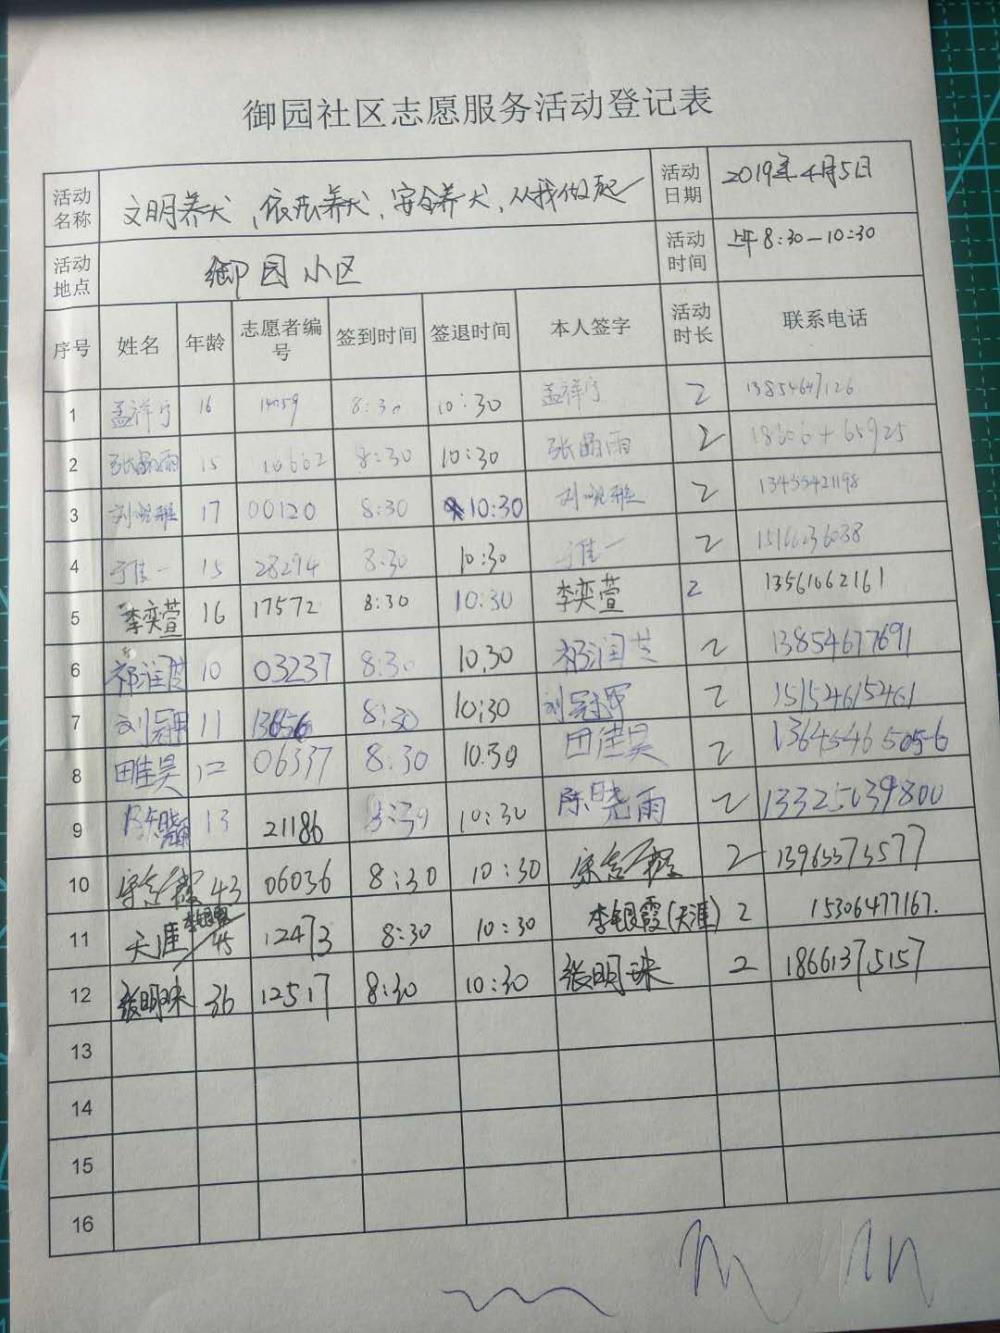 御园社区志愿服务活动登记表
活动名称 文明养犬、依法养犬、安全养犬、从我做起 活动日期 2019年4月5日
活动地点 御园小区 活动时间 上午8:30-10:30
序号 姓名 年龄 志愿者编号 签到时间 签退时间 本人签字 活动时长 联系电话
1 孟祥宁 16 14059 8:30 10:30 孟祥宁 2 13854647126
2 张晶雨 15 10:30 8:30 张晶雨 2
3 17 00120 8:30 10:30 2 13455421198
4 于佳一 15 28294 8:30 10:30 于佳一 2 15166236038
5 李奕萱 16 17572 8:30 10:30 李奕萱 2 13561062161
6 祁润芝 10 03237 8:30 10:30 祁润芝 2 13854677691
7 刘冠军 11 8:30 10:30 刘冠军 2 15154615461
8 田佳昊 12 06337 8:30 10:30 田佳昊 2 13645465056
9 陈晓雨 13 21186 8:30 10:30 陈晓雨 2 13325039800
10 43 06036 8:30 10:30 2 13963373577
11 天涯 李银霞 45 12473 8:30 10:30 李银霞(天涯) 2 15306477167.
12 张明珠 36 12517 8:30 10:30 张明珠 2 18661375157
13
14
15
16